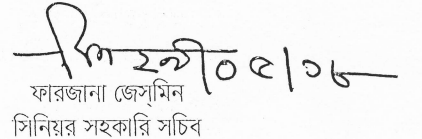 ফারজানা জেস্‌মিন
সিনিয়র সহকারি সচিব